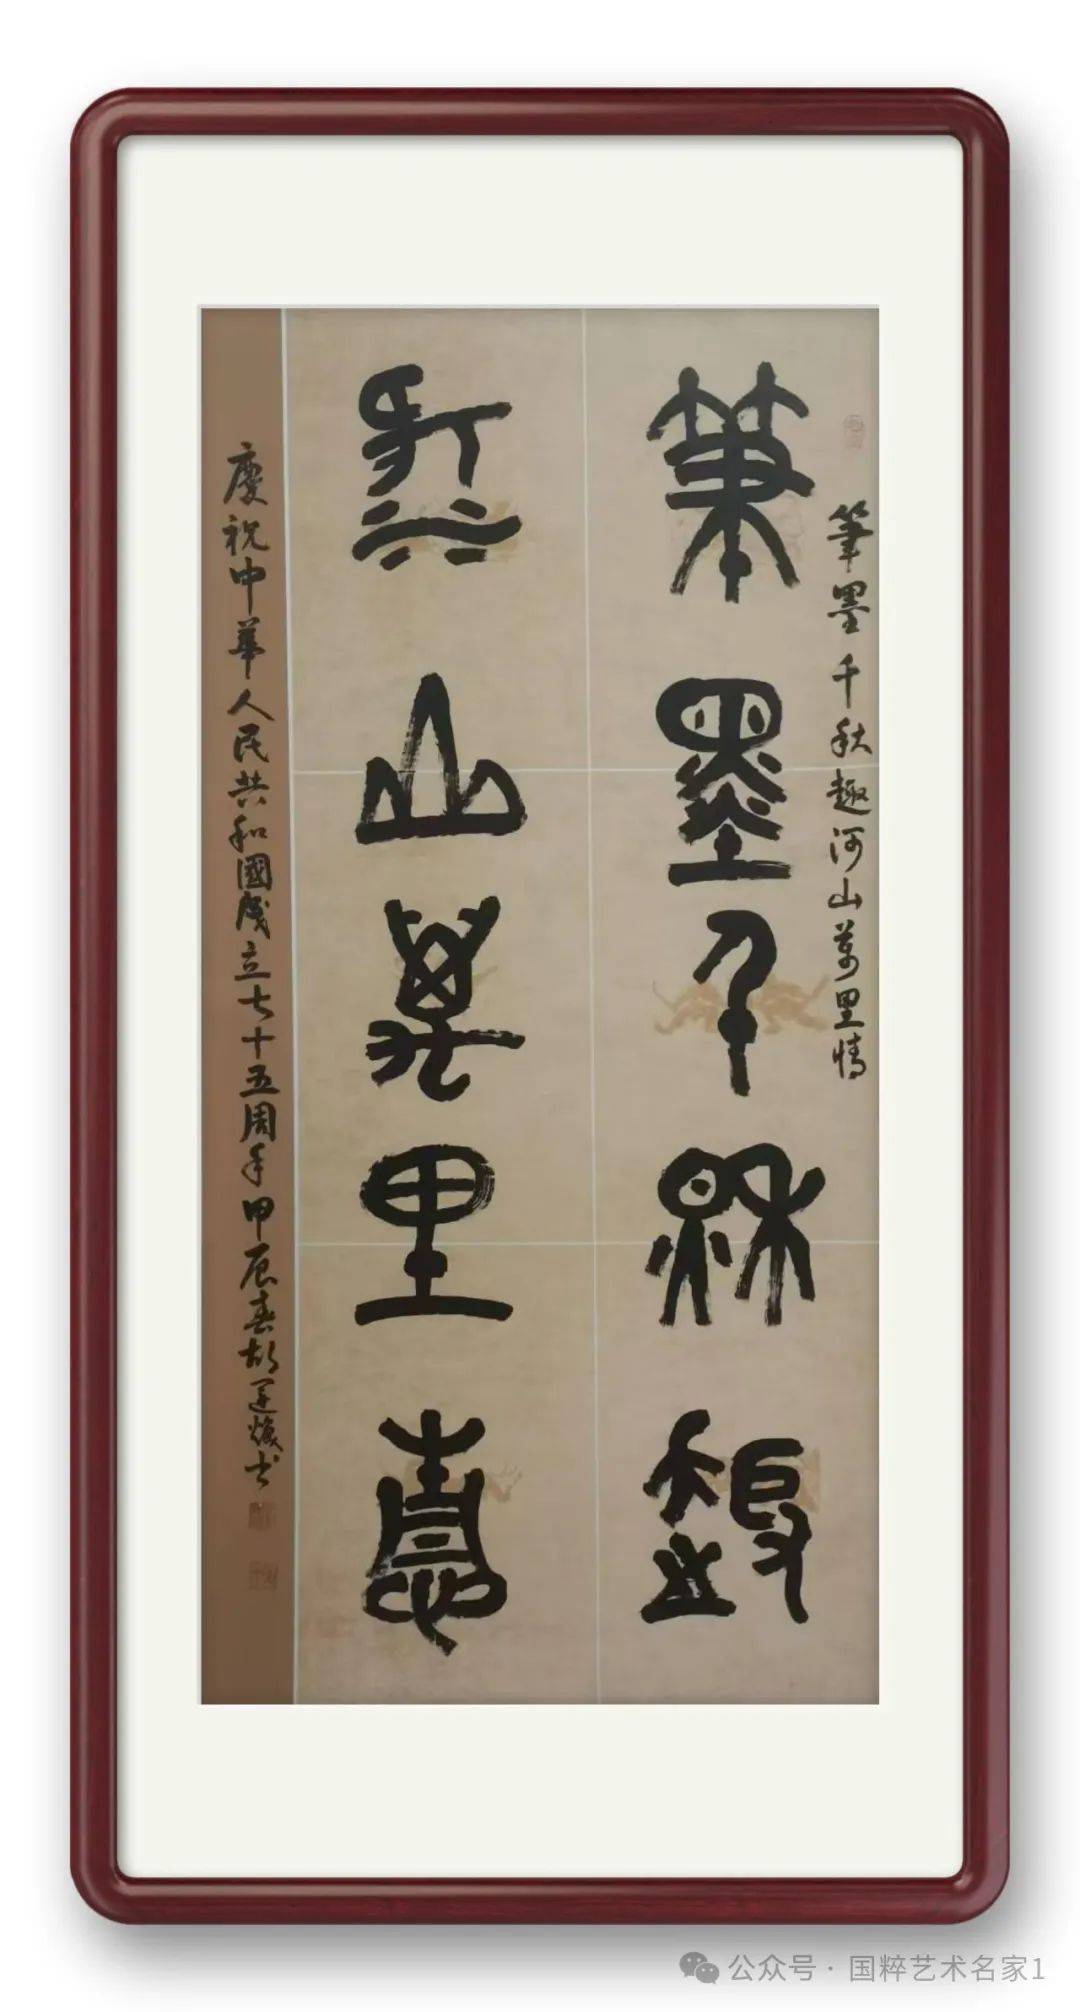 筆墨千秋趣
河山萬里情
筆墨千秋趣河山萬里情
慶祝中華人民共和國成立七十五周年甲辰春胡運煥书
公众号·国粹艺术名家1